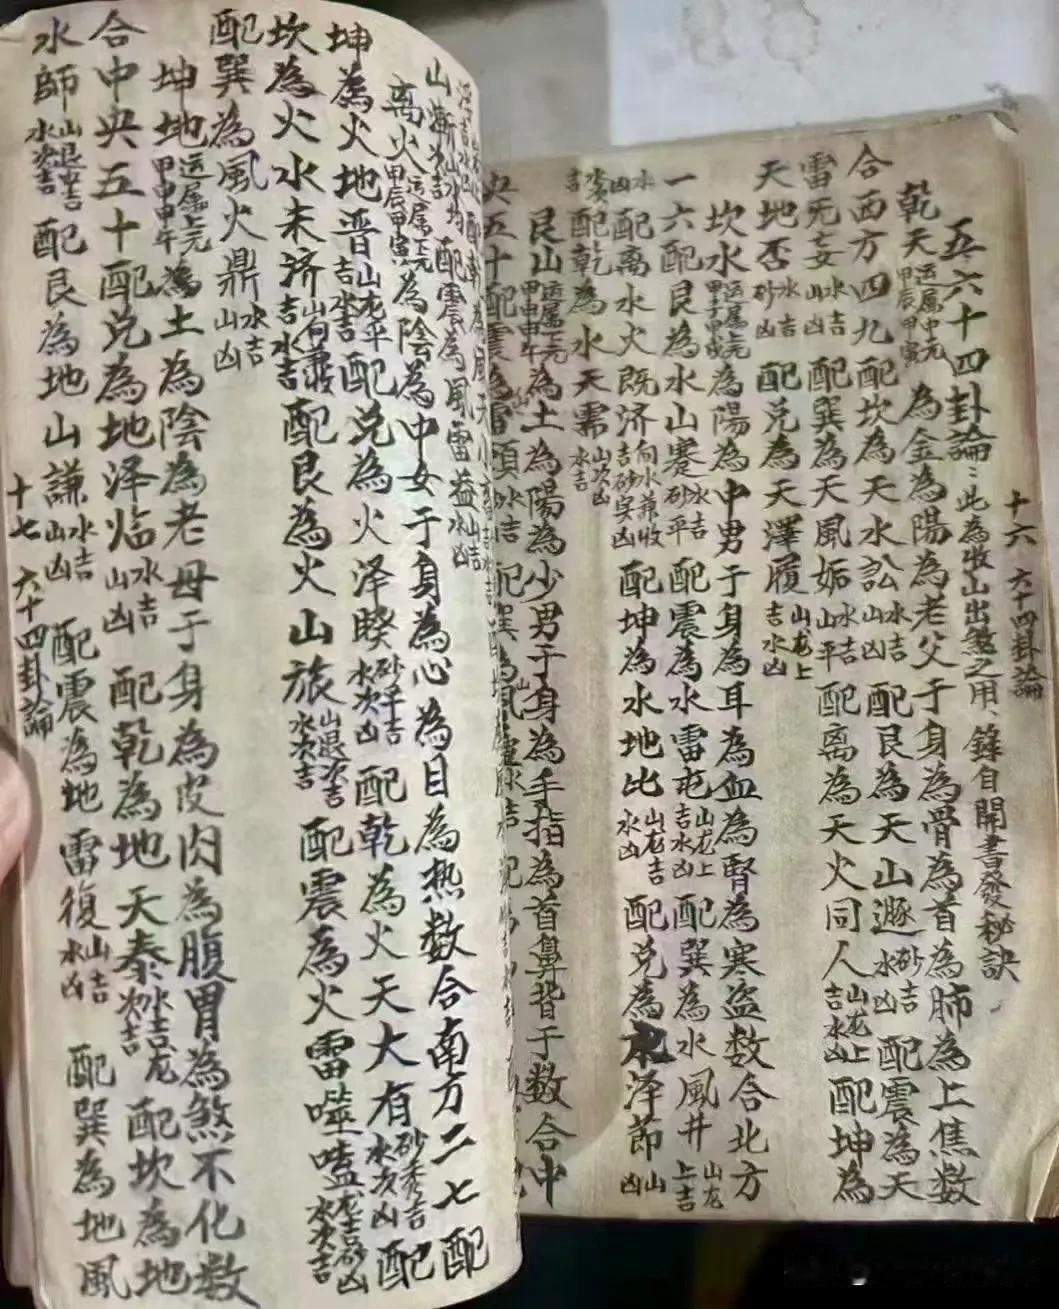 十六 六十四卦論
五、六十四卦論：此為收山出煞之用、錄自開書發秘訣
乾天运属中元甲辰甲寅為金為陽為老父于身為骨為首為肺為上焦数
合西方四九配坎為天水訟水吉山凶配艮為天山遯砂吉水凶配震為天
雷无妄水吉山凶配巽為天風姤水吉山平配离為天火同人山龙上吉水凶配坤為
天地否水吉砂凶配兑為天澤履山龙上吉水凶
坎水运属上元甲子甲戌為陽為中男于身為耳為血為腎為寒盗数合北方
一六配艮為水山蹇水吉砂平配震為水雷屯山龙上吉水凶配巽為水風井山龙上吉
水凶配离水火既济向水兼收吉砂实凶配坤為水地比山龙吉水凶配兑為水泽節山凶
水次吉配乾為水天需山次凶水吉
艮山运属上元甲申甲午為土為陽為少男于身為手指為首鼻背于数合中
央五十配震為
山漸 配震為風雷益山吉水凶
离火运属下元甲辰甲寅為陰為中女于身為心為目為热数合南方二七配
坤為火地晋山龙平吉水吉配兑為火泽睽砂平吉水次凶配乾為火天大有砂秀吉水次凶配
坎為火水未济山向兼收吉水吉配艮為火山旅山退次吉水次吉配震為火雷噬嗑龙吉砂凶水次吉
配巽為風火鼎水吉山凶
坤地运属上元甲申甲午為土為陰為老母于身為皮肉為腹胃為煞不化数
合中央五十配兑為地泽临水吉山凶配乾為地天泰水吉龙次吉配坎為地
水師山退次吉水次吉配艮為地山謙水吉山凶配震為地雷復山吉水凶配巽為地風
十七 六十四卦論